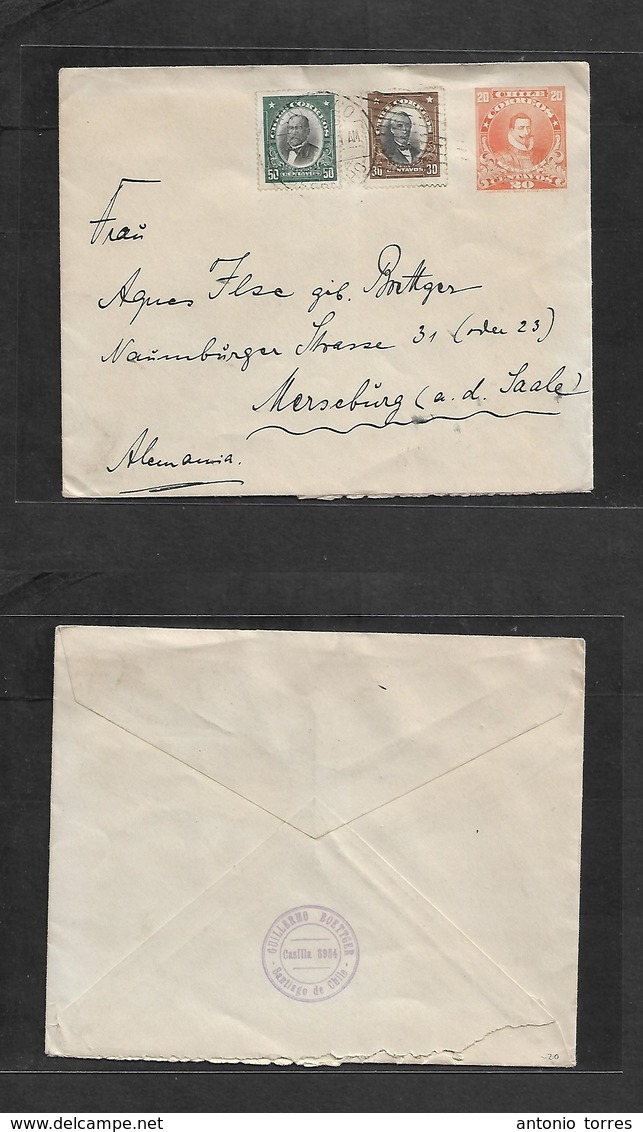 CHILE CORREOS
50 50
CENTAVOS
CHILE CORREOS
30 30
CENTAVOS
20 CHILE 20
CORREOS
CENTAVOS
20
Frau
Agnes Ilse gib. Boettger
Naumburger Strasse 31 (oder 23)
Merseburg (a. d. Saale)
Alemania.
GUILLERMO BOETTGER
Casilla 3954
Santiago de Chile
20
www.delcampe.net
antonio torres